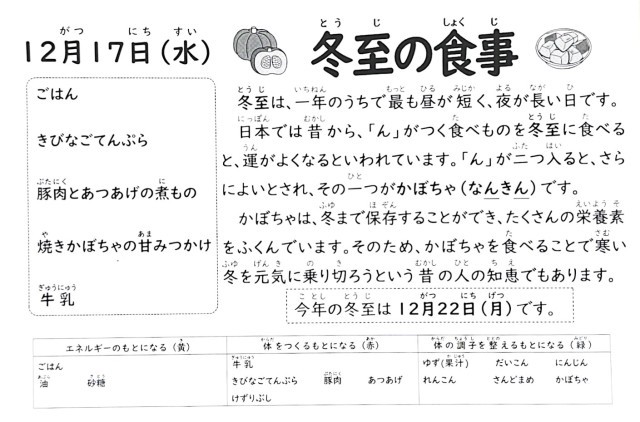 12月17日(水)
冬至の食事
ごはん
きびなごてんぷら
豚肉とあつあげの煮もの
焼きかぼちゃの甘みつかけ
牛乳
冬至は、一年のうちで最も昼が短く、夜が長い日です。
日本では昔から、「ん」がつく食べものを冬至に食べる
と、運がよくなるといわれています。「ん」が二つ入ると、さら
によいとされ、その一つがかぼちゃ(なんきん)です。
かぼちゃは、冬まで保存することができ、たくさんの栄養素
をふくんでいます。そのため、かぼちゃを食べることで寒い
冬を元気に乗り切ろうという昔の人の知恵でもあります。
今年の冬至は12月22日(月)です。
エネルギーのもとになる(黄) 体をつくるもとになる(赤) 体の調子を整えるもとになる(緑)
ごはん 牛乳 ゆず(果汁) だいこん にんじん
油 砂糖 きびなごてんぷら 豚肉 あつあげ れんこん さんどまめ かぼちゃ
けずりぶし